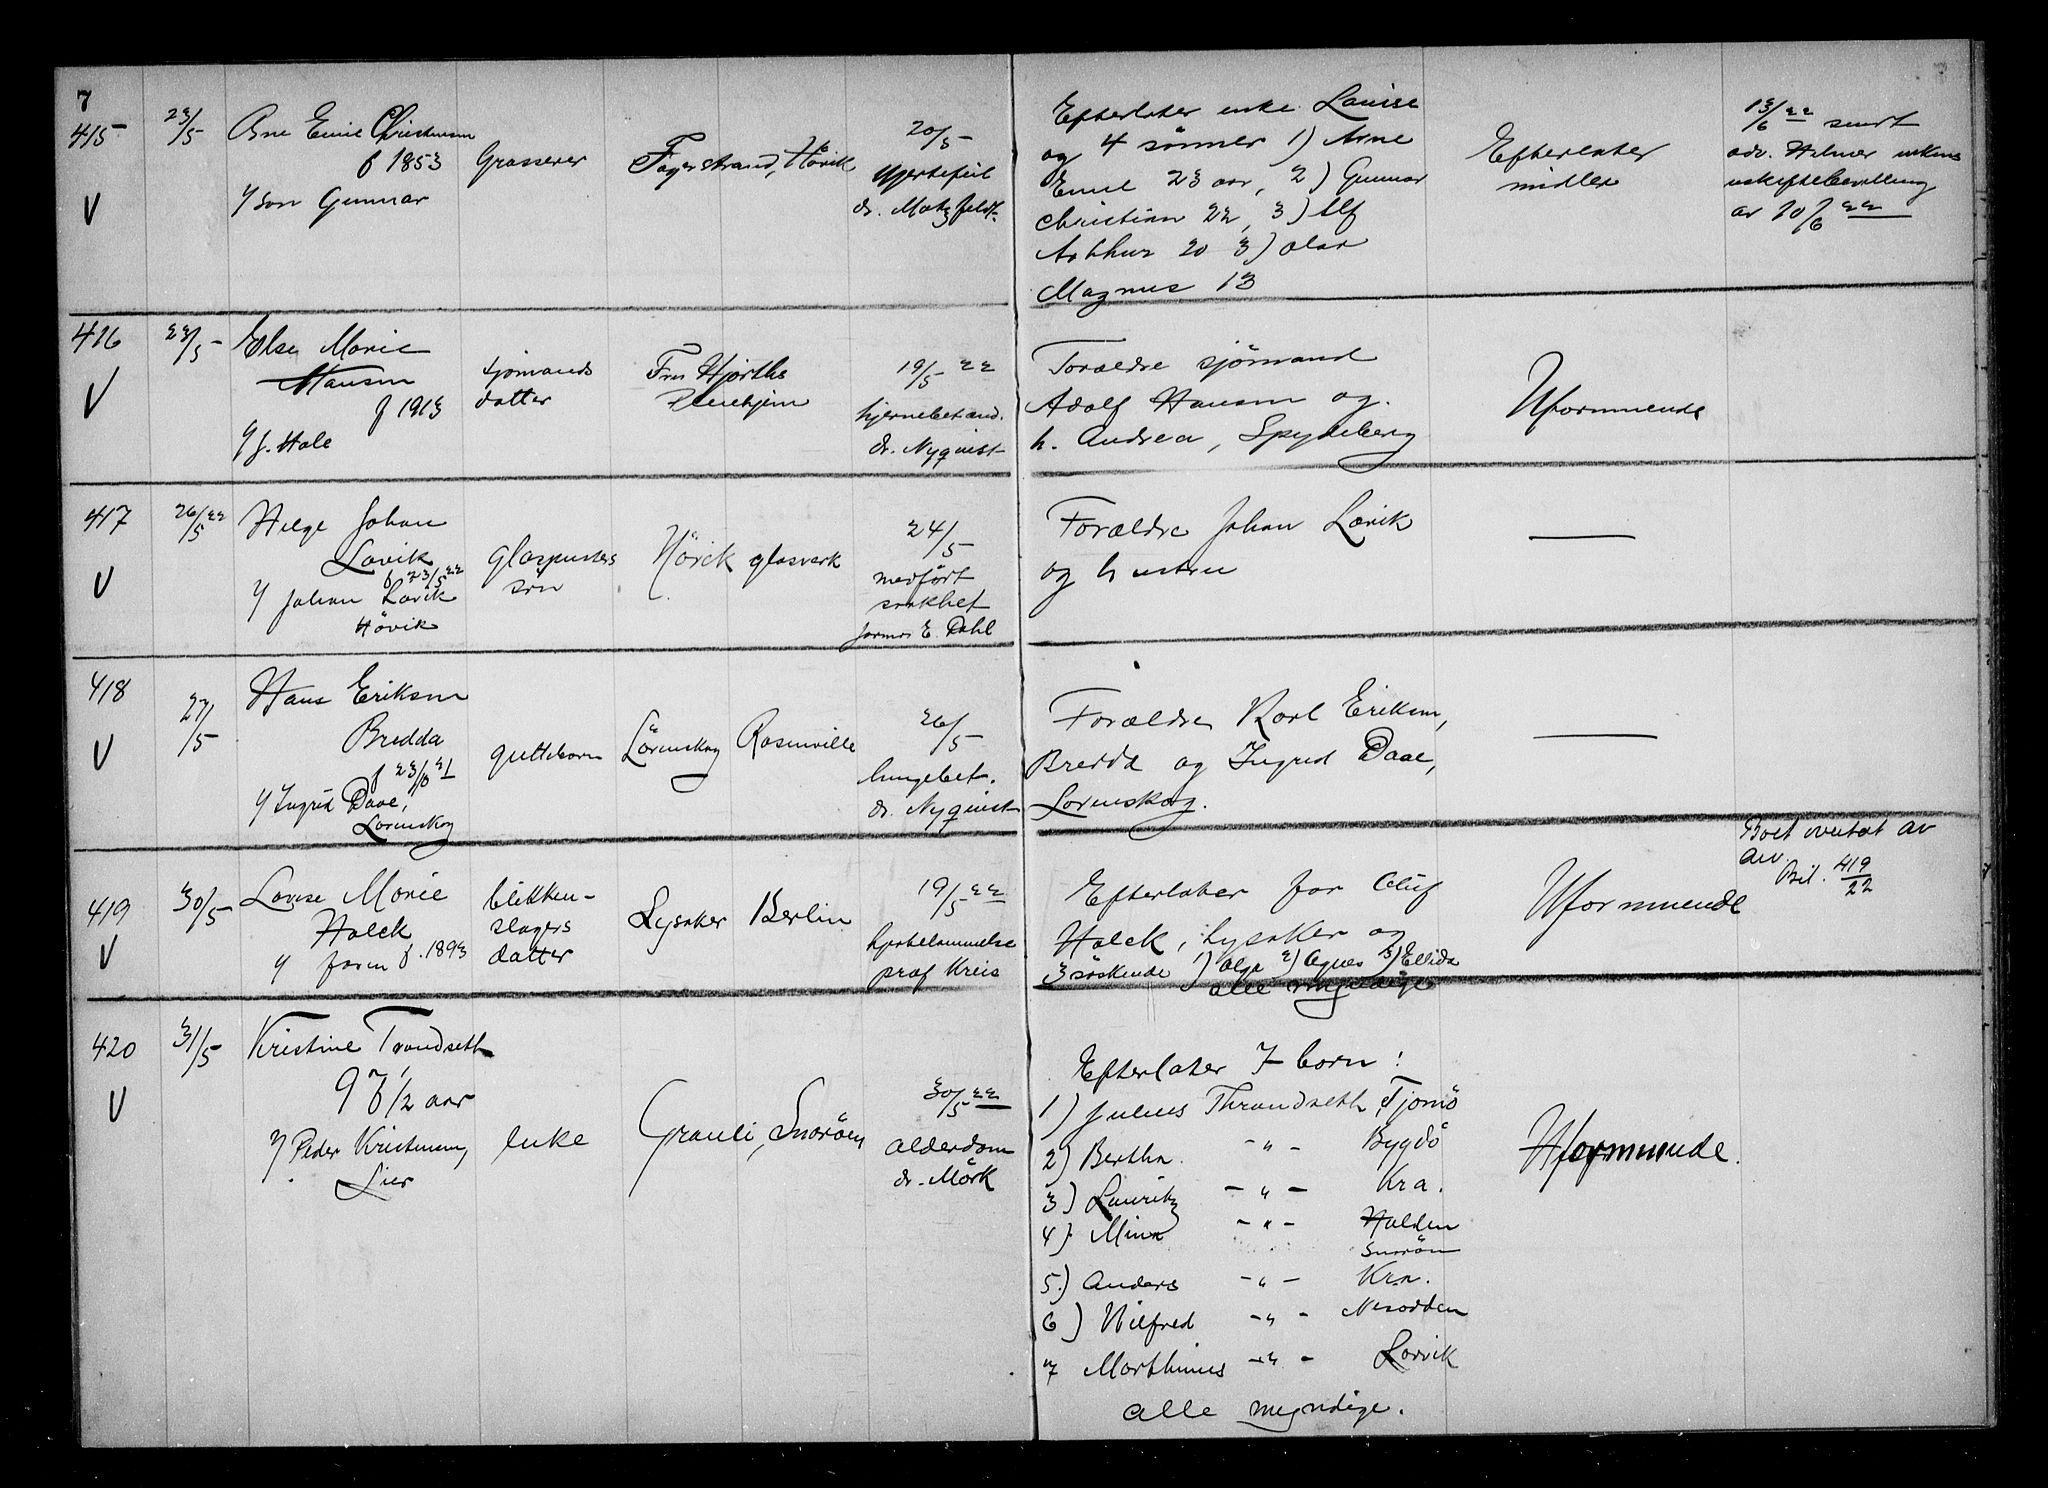 7
415
23/5
Arne Emil Christensen
f 1853
V
Grosserer
Fagerstrand, Hövik
20/5
Hjertefeil
dr. Motzfeldt
Efterlater enke Louise
og 4 sönner 1) Arne
Emil 23 aar, 2) Gunnar
Christian 22, 3) Alf
Arthur 20 3) Olav
Magnus 13
Efterlater
midler
13/6 22 sendt
adv. Helmer enkens
uskiftebevilling
av 10/6 22
y son Gunnar
416
23/5
Else Marie
Hansen
f 1913
y J. Hole
V
sjömands
datter
Fru Hjorths
Pleiehjem
19/5 22
hjernebetænd.
dr. Nyquist
Foræ​ldre sjömand
Adolf Hansen og
h. Andrea, Spydeberg
Uformuende
417
26/5 22
Helge Johan
Lövik
f 23/5 22
y Johan Lövik
Hövik
V
glaspusters
sön
Hövik glasverk
24/5
medfört
svakhet
jormor E. Dahl
Forældre Johan Lövik
og hustru
—
418
27/5
Hans Eriksen
Bredda
f 23/10 21
y Ingrid Daae,
Lörenskog
V
guttebarn
Lörenskog Rosenville
26/5
lungebet.
dr. Nyquist
Forældre Karl Eriksen,
Bredda og Ingrid Daae,
Lörenskog.
—
419
30/5
Lovise Marie
Holck
y faren f. 1893
V
blikken-
slagers
datter
Lysaker Berlin
19/5 22
hjertelammelse
prof Kreis
Efterlater far Oluf
Holck, Lysaker og
3 söskende 1) Olga 2) Agnes 3) Ellida
alle myndige
Uformuende
Boet overtat av
arv.
Bil. 419/22
420
31/5
Kristine Trondseth
97 1/2 aar
y Peder Kristensen,
Lier
V
Enke
Granli, Snaröen
30/5 22
Alderdom
dr. Mörk
Efterlater 7 born:
1) Julius Throndseth, Tjomö
2) Bertha -"- Bygdö
3) Lauritz -"- Kra.
4) Mina -"- Halden
Snaröen
5) Anders -"- Kra.
6) Hilfred -"- Nesodden
7 Marthinus -"- Larvik
alle myndige.
Uformuende.